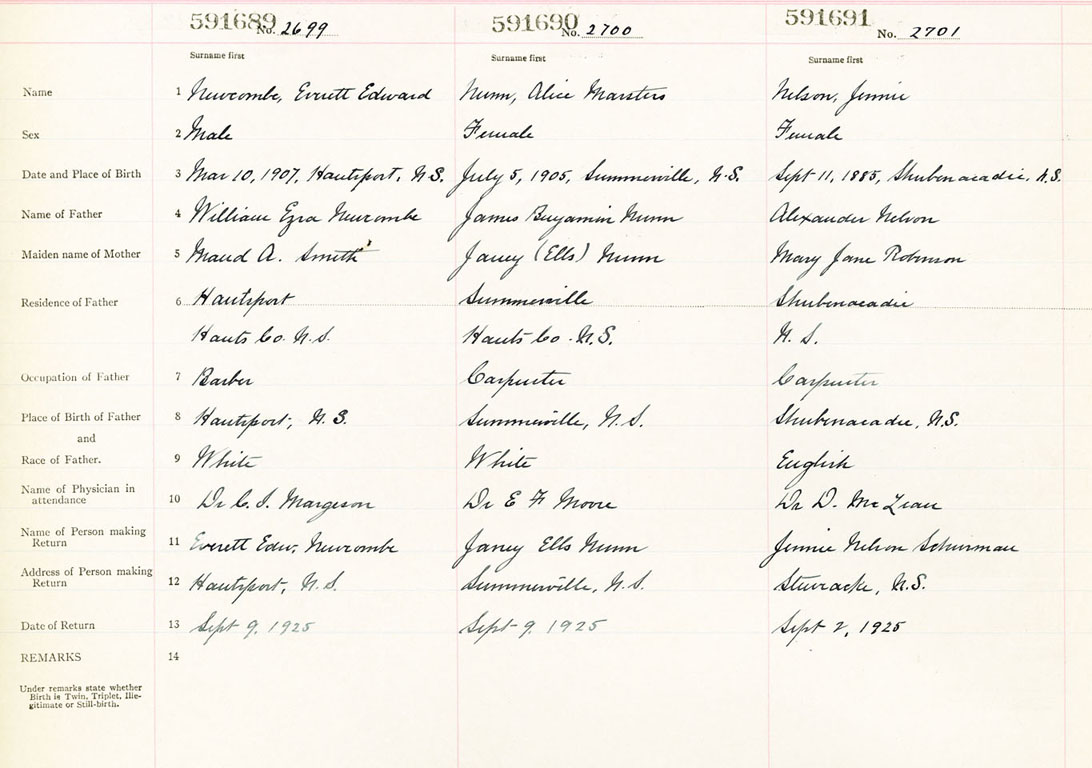 591689 No. 2699 591690 No. 2700 591691 No. 2701
Surname first Surname first Surname first
Name 1 Newcombe, Everett Edward Nunn, Alice Marsters Nelson, Jennie
Sex 2 Male Female Female
Date and Place of Birth 3 Mar 10, 1907, Hantsport, N.S. July 5, 1905, Summerville, N.S. Sept 11, 1885, Shubenacadie, N.S.
Name of Father 4 William Ezra Newcombe James Benjamin Nunn Alexander Nelson
Maiden name of Mother 5 Maud A. Smith Janey (Ells) Nunn Mary Jane Robinson
Residence of Father 6 Hantsport Summerville Shubenacadie
Hants Co. N.S. Hants Co. N.S. N.S.
Occupation of Father 7 Barber Carpenter Carpenter
Place of Birth of Father 8 Hantsport, N.S. Summerville, N.S. Shubenacadie, N.S.
and
Race of Father. 9 White White English
Name of Physician in
attendance 10 Dr C. I. Margeson Dr E F Moore Dr D. McLean
Name of Person making
Return 11 Everett Edw. Newcombe Janey Ells Nunn Jennie Nelson Schurman
Address of Person making
Return 12 Hantsport, N.S. Summerville, N.S. Stewiacke, N.S.
Date of Return 13 Sept 9, 1925 Sept 9, 1925 Sept 2, 1925
REMARKS 14
Under remarks state whether
Birth is Twin, Triplet, Ille-
gitimate or Still-birth.